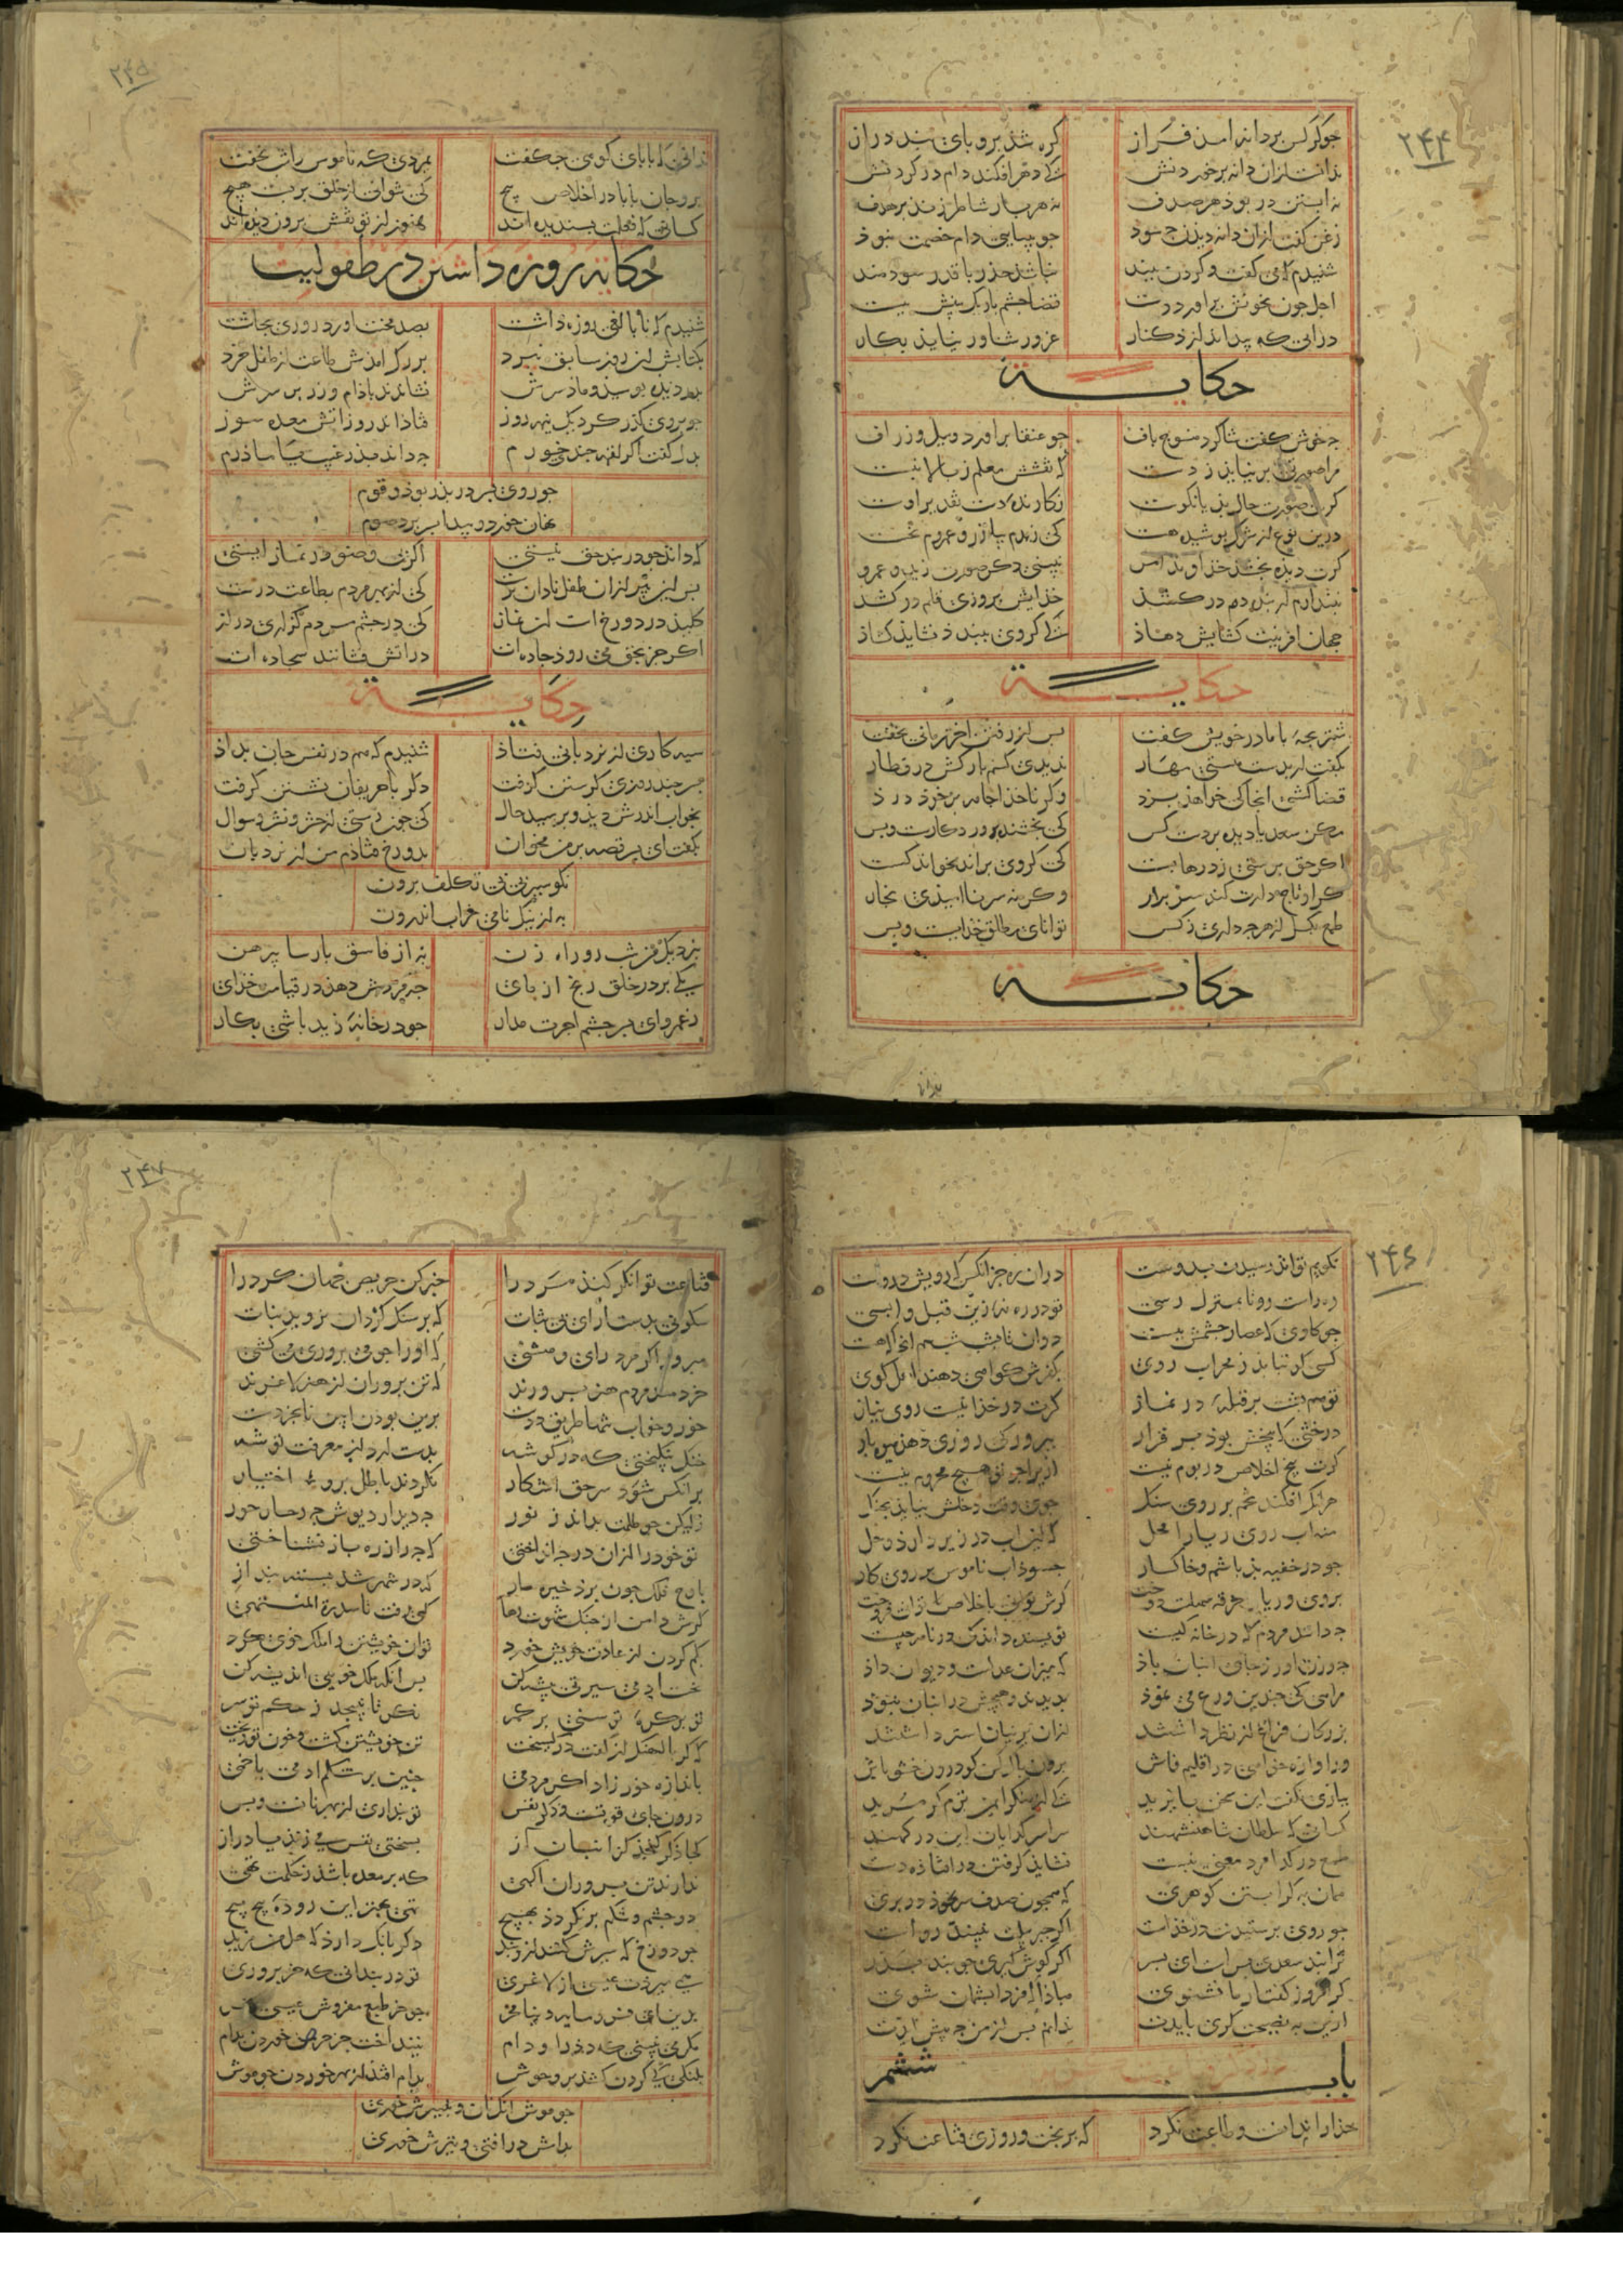 ۲۴۴
جو کرکس بر دانه امذ فراز کره شذ برو پای بندی دراز
ندانست ازان دانه بر خوردنش که دهر افکند دام در کردنش
نه آبستن در بوذ هر صدف نه هر بار شاطر زند بر هدف
زغن کفت ازان دانه دیدن چه سود جو بینایی دام خصمت نبوذ
شنیدم که می کفت و کردن ببند نباشد حذر با قدر سودمند
اجل جون بخونش براورد دست قضا جشم باریک بینش ببست
درابی که پیدا ندارد کنار غرور شناور نیاید بکار
حکایة
چه خوش کفت شاکرد منسوج باف جو عنقا براورد و پیل و زراف
مرا صورتی بر نیاید ز دست که نقشش معلم ز بالا نبست
کرت صورت حال بد یا نکوست نکارنده دست تقدیر اوست
درین نوع از شرک پوشیده هست که زیدم بیازرد و عمروم بخست
کرت دیده بخشد خذاوند امر نبینی دکر صورت زید و عمرو
نبندارم ار بنده دم در کشد خذایش بروزی قلم در کشد
جهان افرینت کشایش دهاذ که کر وی ببندد نشاید کشاذ
حکایة
شتر بجه با مادر خویش کفت بس از رفتن اخر زمانی بخفت
بکفت ار بدست منستی مهار ندیدی کسم بارکش در قطار
قضا کشتی انجا که خواهذ برد وکر ناخذا جامه بر خوذ درذ
مکن سعدیا دیده بر دست کس که بخشنده پروردکارست و بس
اکر حق پرستی ز درها بست که کر وی براند نخواند کست
کر او تاجدارت کند سر برار وکر نه سر ناامیدی بخار
طمع بکسل از هرجه داری ز کس توانای مطلق خذایست و بس
حکایة
بدانی
۲۴۵
ندانی که بابای کوهی جه کفت بمردی که ناموس را شب نخفت
برو جان بابا در اخلاص پیچ که نتوانی از خلق بر بست هیچ
کسانی که فعلت پسندیده اند هنوز از تو نقش برون دیده اند
حکایة روزه داشتن در طفولیت
شنیدم که نابالغی روزه داشت بصد محنت اورد روزی بجاشت
بکتابش ان روز سایق نبرد بزرک امدش طاعت از طفل خرد
پدر دیده بوسید و مادر سرش فشاندند باذام و زر بر سرش
جو بر وی کذر کرد یک نیمه روز فتاذ اندرو ز اتش معده سوز
بدل کفت اکر لقمه جندی خورم جه داند پذر غیب یا ماذرم
جو روی پسر در پذر بوذ و قوم نهان خورد و پیدا بسر برد صوم
که داند جو در بند حق نیستی اکر بی وضو در نماز ایستی
بس این پیر ازان طفل نادان ترست که از بهر مردم بطاعت درست
کلید در دوزخ است ان نماز که در جشم مردم کزاری دراز
اکر جز بحق می روذ جاده ات در اتش فشانند سجاده ات
حکایة
سیه کاری از نردبانی فتاذ شنیدم که هم در نفس جان بداذ
پسر جند روزی کرستن کرفت دکر با حریفان نشستن کرفت
بخواب اندرش دید و پرسید حال که جون رستی از حشر و نشر و سوال
بکفت ای پسر قصه بر من مخوان بدوزخ فتاذم من از نردبان
نکو سیرتی بی تکلف برون به از نیک نامی خراب اندرون
بنزدیک من شب رو راه زن به از فاسق پارسا پیرهن
یکی بر در خلق رنج ازمای جه مزدش دهذ در قیامت خذای
ز عمرو ای پسر جشم اجرت مدار جو در خانه زید باشی بکار
۲۴۶
نکویم تواند رسیدن بدوست دران ره جز انکس که رویش دروست
ره راست رو تا بمنزل رسی تو در ره نه زین قبل واپسی
جو کاوی که عصار جشمش ببست دوان تا بشب شب هم انجا که هست
کسی کو بتابد ز محراب روی بکفرش کواهی دهند اهل کوی
تو هم پشت بر قبله در نماز کرت در خذا نیست روی نیاز
درختی که بیخش بوذ بر قرار ببرور که روزی دهذ میوه بار
کرت بیخ اخلاص در بوم نیست ازین بر جو تو هیچ محروم نیست
هر انکو افکند تخم بر روی سنک جوی وقت دخلش نیاید بجنک
منه اب روی ریا را محل که این اب در زیر دارذ وحل
جو در خفیه بد باشم و خاکسار جه سوذ اب ناموس بر روی کار
بروی و ریا خرقه سهلست دوخت کرش با خذا در توانی فروخت
جه دانند مردم که در خانه کیست نویسنده داند که در نامه جیست
جه وزن اورذ جای انبان باذ که میزان عدلست و دیوان داذ
مرایی که جندین ورع می نموذ بدیدند و هیچش در انبان نبوذ
بزرکان فراغ از نظر داشتند ازان پرنیان استر داشتند
ور اوازه خواهی در اقلیم فاش برون حله کن کو درون حشو باش
ببازی نکفت این سخن بایزید که از منکر ایمن ترم کز مرید
کسانی که سلطان و شاهنشهند سراسر کدایان این درکهند
طمع در کدا مرد معنی نبست نشاید کرفتن در افتاذه دست
همان به کر ابستن کوهری که همجون صدف سر بخوذ در بری
جو روی پرستیدنت در خذاست اکر جبرئیلت نبیند رواست
ترا پند سعدی بس است ای پسر اکر کوش کیری جو پند پذر
کر امروز کفتار ما نشنوی مباذا که فردا پشیمان شوی
ازین به نصیحت کری بایدت ندانم پس از من جه پیش ایدت
باب ششم
خذا را ندانست و طاعت نکرد که بر بخت و روزی قناعت نکرد
۲۴۷
قناعت توانکر کند مرد را خبر کن حریص جهان کرد را
سکونی بدست اور ای بی ثبات که بر سنک کردان نروید نبات
مپرور تن ار مرد رای و هشی که او را جو می پروری می کشی
خردمند مردم هنر پرورند که تن پروران از هنر لاغرند
خور و خواب تنها طریق ددست برین بودن ایین نابخردست
خنک نیکبختی که در کوشه بدست ارد از معرفت توشه
بر انکس شود سر حق اشکار نکردند باطل برو اختیار
ولیکن جو ظلمت نداند ز نور جه دیدار دیوش جه رخسار حور
تو خود را ازان در جه انداختی که جه را ز ره باز نشناختی
بر اوج فلک جون پرد جره باز که در شهپرش بسته سنک از
کرش دامن از جنک شهوت رها کنی رفت تا سدرة المنتهی
بکم کردن از عادت خویش خورد توان خویشتن را ملک خوی کرد
نخست ادمی سیرتی پیشه کن پس انکه ملک خویی اندیشه کن
تو بر کره توسنی بر کمر نکر تا نپیچد ز حکم تو سر
که کر پالهنک از کفت در کسیخت تن خویشتن کشت و خون تو ریخت
باندازه خور زاد اکر مردمی جنین پر شکم ادمی یا خمی
درون جای قوتست و ذکر و نفس تو پنداری از بهر نانست و بس
کجا ذکر کنجد در انبان از بسختی نفس می زند پا دراز
ندارند تن پروران اکهی که پر معده باشذ ز حکمت تهی
دو جشم و شکم پر نکردذ بهیچ تهی بهتر این روده پیچ پیچ
جو دوزخ که سیرش کنند از وقید دکر بانک دارذ که هل من مزید
همی میردت عیسی از لاغری تو در بند انی که خر پروری
بدین ای فرومایه دنیا مخر جو خر طبع مفروش عیسی
مکر می نبینی که دد را و دام نینداخت جز حرص خوردن بدام
پلنکی که کردن کشذ بر وحوش بدام افتذ از بهر خوردن جو موش
جو موش انکه نان و پنیرش خوری بدامش در افتی و تیرش خوری